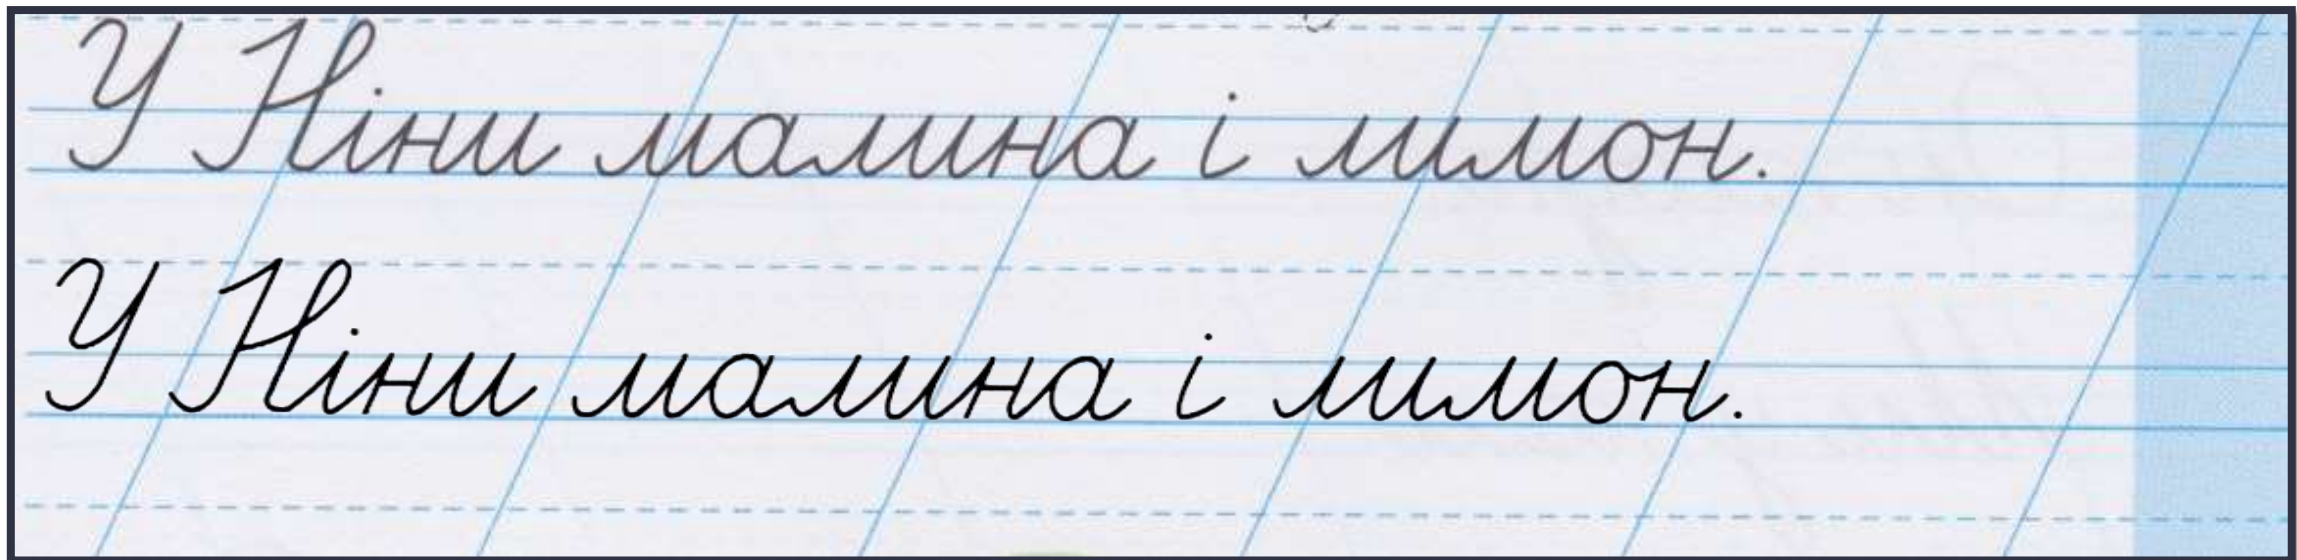 У Ніни малина і лимон.
У Ніни малина і лимон.